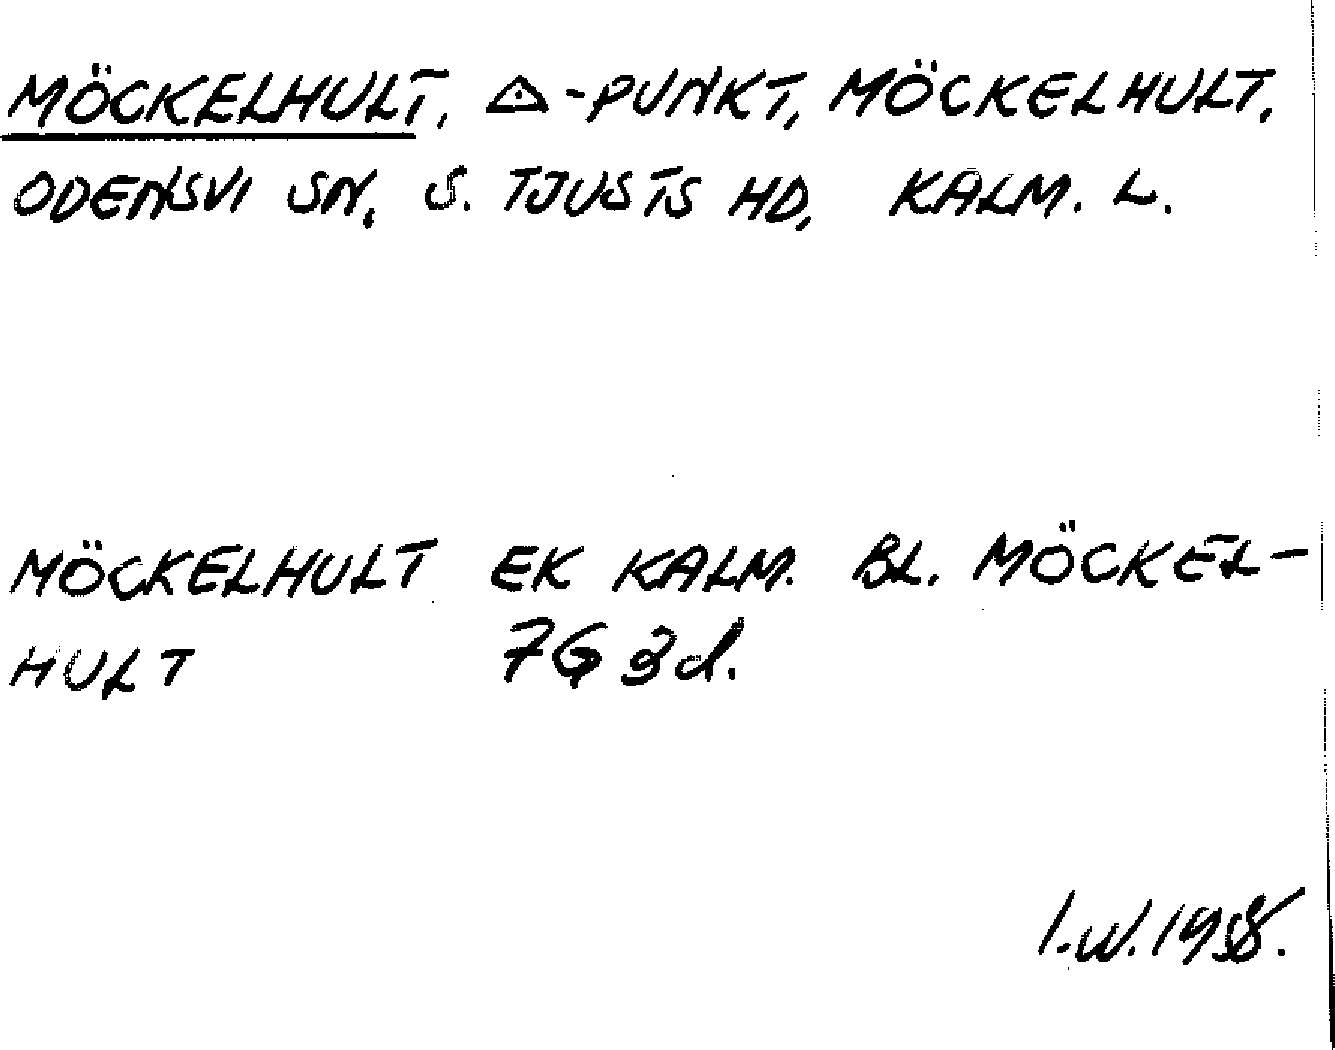 MÖCKELHULT, △-PUNKT, MÖCKELHULT,
ODENSVI SN, S. TJUSTS HD, KALM. L.
MÖCKELHULT EK KALM. BL. MÖCKEL-
HULT 7G 3d.
I.W.